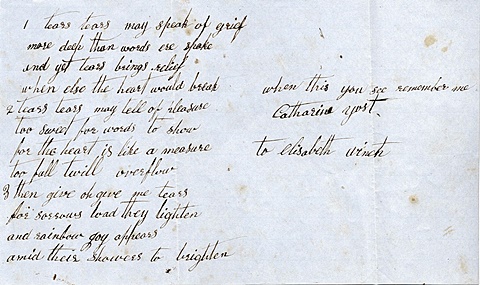 1 tears tears may speak of grief
more deep than words ere spoke
and yet tears brings relief
when else the heart would break
2 tears tears may tell of pleasure
too sweet for words to show
for the heart is like a measure
too full twill overflow
3 then give oh give me tears
for sorrows load they lighten
and rainbow goy appears
amid their showers to brighten
when this you see remember me
Catharine Yost.
to Elisabeth Winch